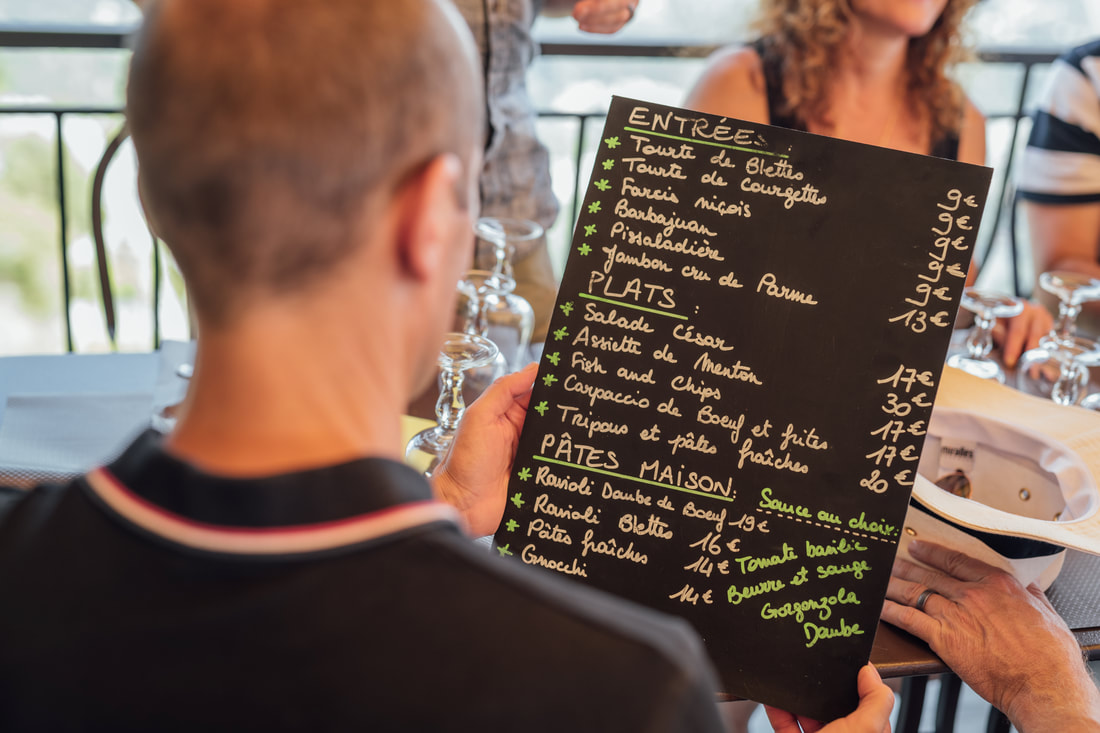 ENTRÉES:
* Tourte de Blettes 9€
* Tourte de Courgettes 9€
* Farcis niçois 9€
* Barbajuan 9€
* Pissaladière 9€
* Jambon cru de Parme 13€
PLATS:
* Salade César 17€
* Assiette de Menton 30€
* Fish and Chips 17€
* Carpaccio de Boeuf et frites 17€
* Tripous et pâtes fraîches 20€
PÂTES MAISON:
* Ravioli Daube de Boeuf 19€
* Ravioli Blettes 16€
* Pâtes fraîches 14€
* Gnocchi 14€
Sauce au choix:
Tomate basilic
Beurre et sauge
Gorgonzola
Daube